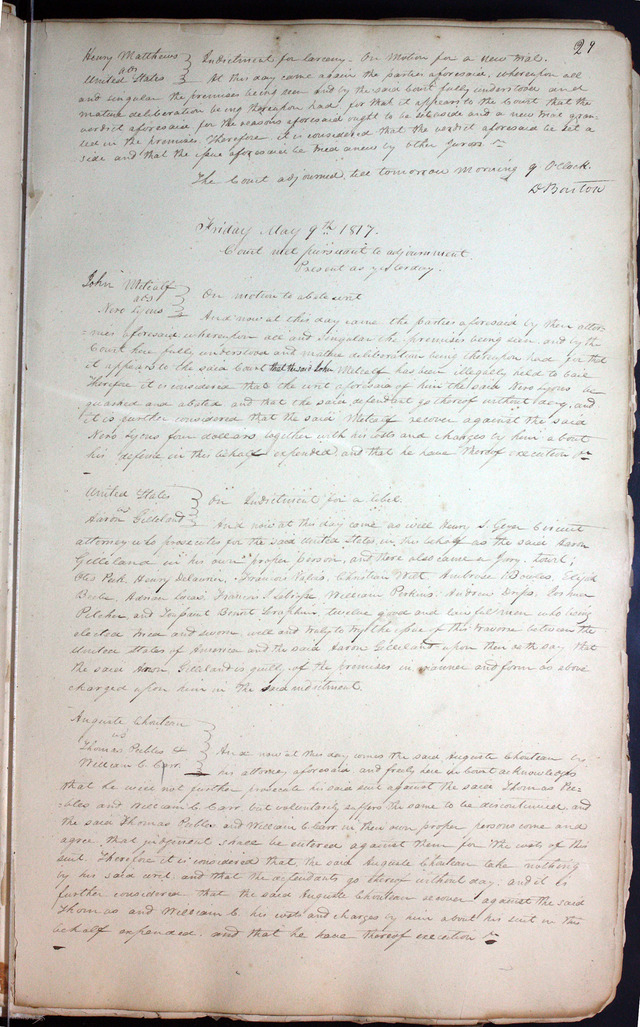 29
Henry Matthews } Indictment for larceny. On Motion for a new trial.
ads
United States } At this day came again the parties aforesaid, whereupon all
and singular the premises being seen and by the said Court fully understood and
mature deliberation being thereupon had for that it appears to the Court that the
verdict aforesaid for the reasons aforesaid ought to be set aside and a new trial gran-
ted in the premises. Therefore it is considered that the verdict aforesaid be set a
side and that the issue aforesaid be tried anew by other Jurors
The Court adjourned till tomorrow morning 9 OClock.
Friday May 9th 1817.
Court met pursuant to adjournment.
Present as yesterday.
John Metcalf
ads } On motion to abate writ
Nero Lyons } And now at this day came the parties aforesaid by their attor-
=nies aforesaid, whereupon all and singular the premises being seen, and by the
Court here fully understood and mature deliberation being thereupon had for that
it appears to the said Court that the said John Metcalf has been illegally held to bail
Therefore it is considered that the writ aforesaid of him the said Nero Lyons be
quashed and abated and that the said defendant go thereof without day, and
it is further considered that the said Metcalf recover against the said
Nero Lyons four dollars together with his costs and charges by him about
his defence in this behalf expended, and that he have thereof execution &c
United States
vs } On Indictment for a libel.
Aaron Gilleland } And now at this day come as well Henry S. Geyer Circuit
attorney who prosecutes for the said United States, in this behalf as the said Aaron
Gilleland in his own proper person, and there also came a Jury, towit;
Otis Peck, Henry Delaurier, Francois Valois, Christian Witt, Ambrose Bowles, Elijah
Adrian Lucas, Francis William Perkins, Andrew Drips, Joshua
Pilcher, and Toussaint Benoit twelve good and lawful men who being
elected tried and sworn, well and truly to try the issue of this traverse between the
United States of America and the said Aaron Gilleland upon their oath say that
the said Aaron Gilleland is guilty of the premises in manner and form as above
charged upon him in the said indictment.
Auguste Chouteau
vs
Thomas Peebles & } And now at this day comes the said Auguste Chouteau by
William C. Carr. } his attorney aforesaid, and freely here in Court acknowledges
that he will not further prosecute his said suit against the said Thomas Pee-
bles and William C. Carr but voluntarily suffers the same to be discontinued and
the said Thomas Peebles and William C. Carr in their own proper persons come and
agree that judgment shall be entered against them for the costs of this
suit. Therefore it is considered that the said Auguste Chouteau take nothing
by his said writ, and that the defendants go thereof without day. and it is
further considered that the said Auguste Chouteau recover against the said
Thomas and William C. his costs and charges by him about his suit in this
behalf expended. and that he have thereof execution &c